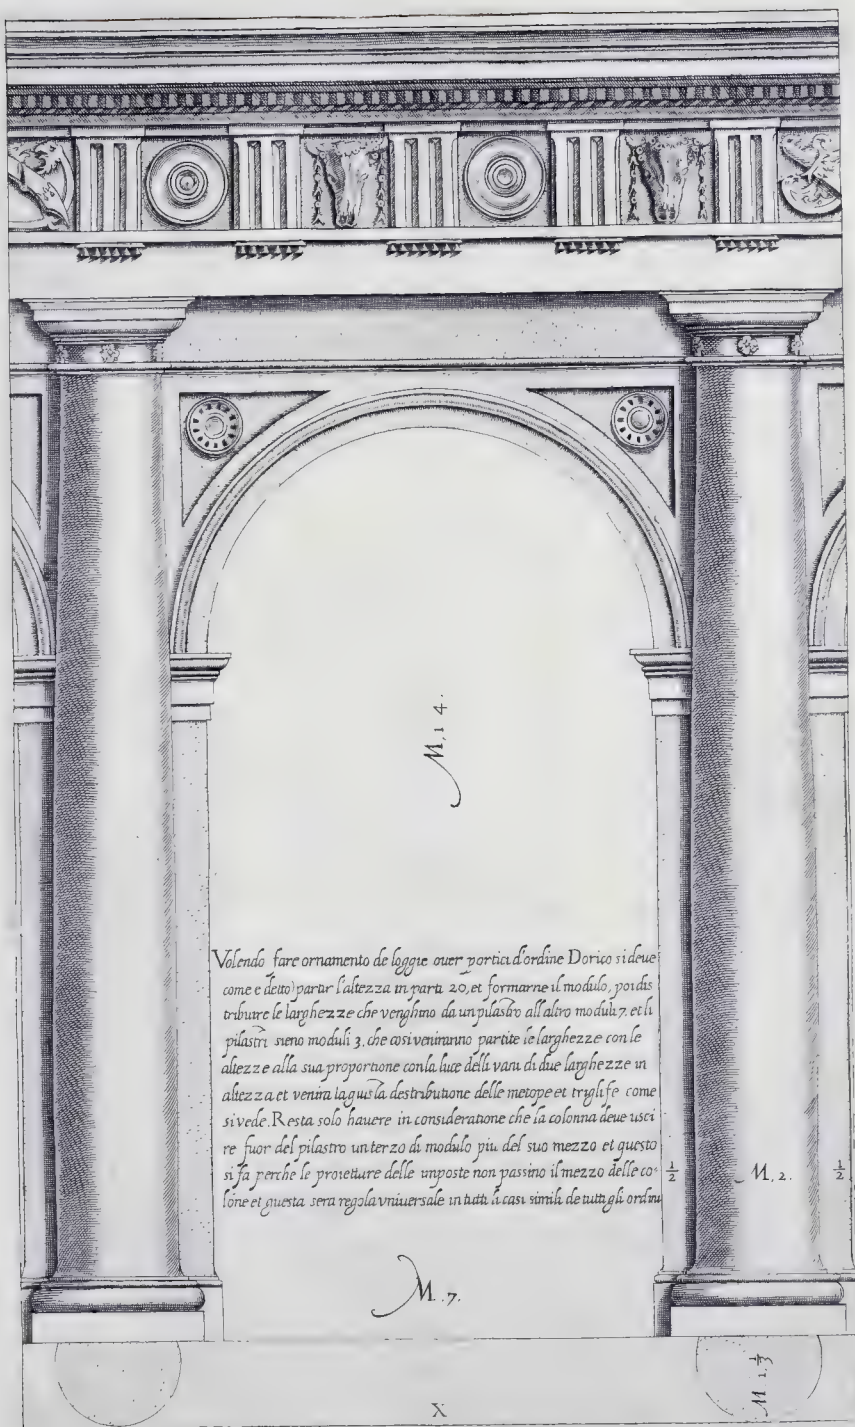 M. 14.
Volendo fare ornamento de loggie ouer portici d'ordine Dorico si deue
come e detto partir l'altezza in parti 20, et formarne il modulo, poi dis
tribuire le larghezze che venghino da un pilastro all'altro moduli 7. et li
pilastri sieno moduli 3. che cosi veniranno partite le larghezze con le
altezze alla sua proportione con la luce delli vani di due larghezze in
altezza et venira la guista destributione delle metope et triglife come
si vede. Resta solo hauere in consideratione che la colonna deue usci
re fuor del pilastro un terzo di modulo piu del suo mezzo et questo
si fa perche le proietture delle imposte non passino il mezzo delle co-
lone et questa sera regola vniuersale in tutti li casi simili de tutti gli ordini
1/2 M. 2. 1/2
M. 7.
M 1 1/3
X